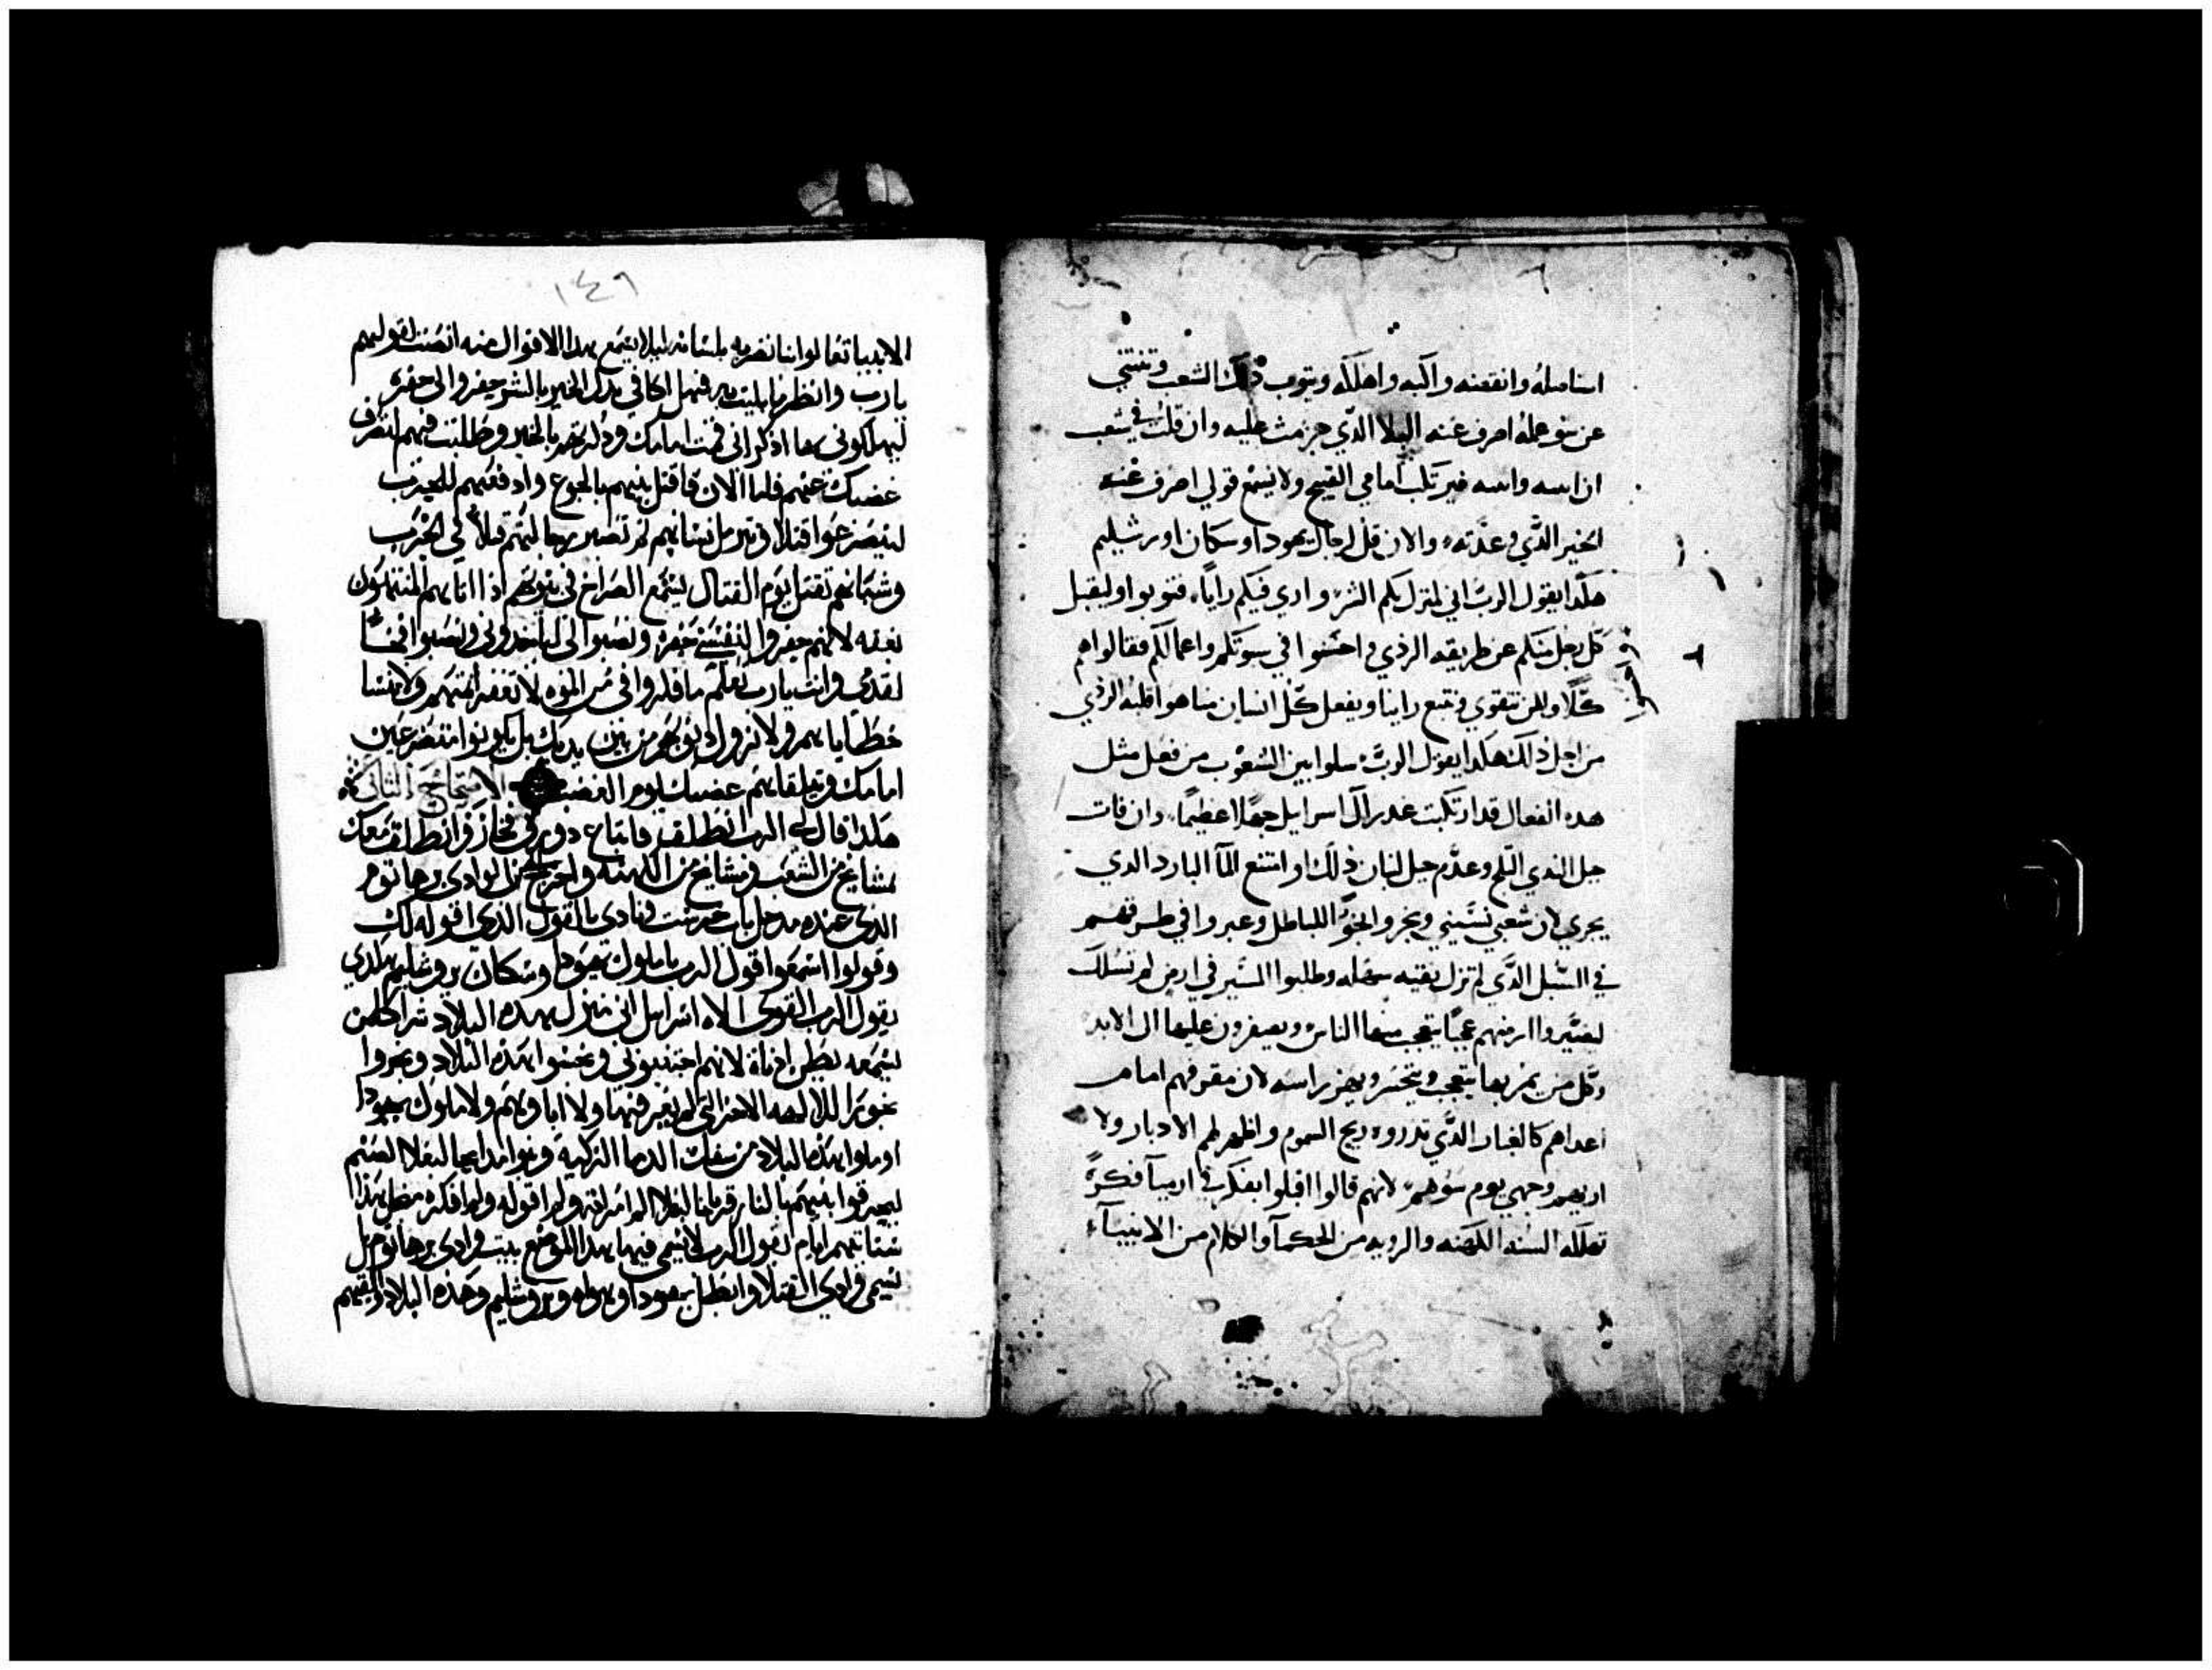 استاصله وانقضه واكبه واهلكه ويتوب ذلك الشعب وتنتهي
عن سو عمله اصرف عنه البلا الذي جزمت عليه وان قلت في شعب
ان ابنيه وانميه فيرتكب امامي القبيح ولا يسمع قولي اصرف عنه
الخير الذي وعدته والان قل لرجال يهودا وسكان اورشليم
هكدا يقول الرب اني منزل بكم الشر واري فيكم رايا فتوبوا وليقبل
كل رجل منكم عن طريقه الردي واحسنوا في سيرتكم واعمالكم فقالوا هم
كلا ولكن نتقوي ونتبع راينا ويفعل كل انسان منا هوا قلبه الردي
من اجل ذلك هكدا يقول الرب سلوا بين الشعوب من فعل مثل
هده الفعال قد ارتكبت عدرا ال اسرايل جهلا عظيما وان فات
جبل الندي الثلج وعدم جبل لبنان ذلك او امتنع الما البارد الدي
يجري لان شعبي نسيني وبخروا البخور للباطل وعبروا في طرقهم
في السبل الذي لم تزل نقيه سهله وطلبوا السير في ارض لم تسلك
ليصيروا ارضهم عجبا يتعجب منها الناس ويصفرون عليها الى الابد
وكل من يمر بها يتعجب ويتحسر ويهز راسه لان مفرقهم امام
اعداهم كالغبار الذي تذروه ريح السموم واظهر لهم الادبار ولا
اريهم وجهي يوم سوهم لانهم قالوا اقبلوا بفكر في ارميا فكرة
تهلكه السنه الكهنه والرويه من الحكمآ والكلام من الانبيآء
١٤٩
الانبيا تعالوا بنا نضربه بلسانه ليلا يسمع هدا الاقوال منه انصت لقولهم
يارب وانظر ما بليت به فهل اكافي بدل الخير بالشر حفروا لي حفره
ليهلكوني بها اذكر اني قمت امامك وذكرتهم بالخير وطلبت فيهم لتصرف
غضبك عنهم فاما الان فاقتل بنيهم بالجوع وادفعهم للحرب
ليصرعوا قتلا وترمل نسايهم ثم تصير رجالهم قتلا في الحرب
وشبانهم تقتل يوم القتال ليسمع الصراخ في بيوتهم اذا اتاهم المنتهبون
بغته لانهم حفروا لنفسي حفره ونصبوا لي لياخدوني ونصبوا فخا
لقدمي وانت يارب تعلم ما فكروا في من الموه لا تغفر اثمهم ولا تنسا
خطاياهم ولا تزول ذنوبهم من بين يديك بل يكونوا متضرعين
امامك وتبلقاهم غضبك يوم الغضب الاصحاح الثاني
هكدا قال لي الرب انطلق فابتاع دورق فخار وانطلق معك
مشايخ من الشعب ومشايخ من الكهنه واخرج الى الوادي برهانوم
الذي عنده مدخل باب حرست ونادي بالقول الدي اقوله لك
وقولوا اسمعوا قول الرب يا ملوك يهودا وسكان يروشليم هكدي
يقول الرب القوي الاه اسرايل اني منزل بهده البلاد شرا كلمن
يسمعه يطن اذناه لانهم اجتنبوني ونجسوا هذه البلاد وبخروا
بخورا للالهه الاخرا التي لم يعرفها ولا اباوهم ولا ملوك يهودا
او ملوا هذه البلاد من سفك الدما الزكيه وبنوا مدابحا لبعلا الصنم
ليحرقوا بنيهم بالنار قربانا لبعلا لم امر به ولم اقوله ولم افكره فمن اجل هذا
ستاتيهم ايام يقول الرب لا يسمي فيها هدا الموضع بيت وادي برهانوم بل
يسمى وادي القتلا وابطل يهودا وهواه ويروشليم وهذه البلاد والقيهم